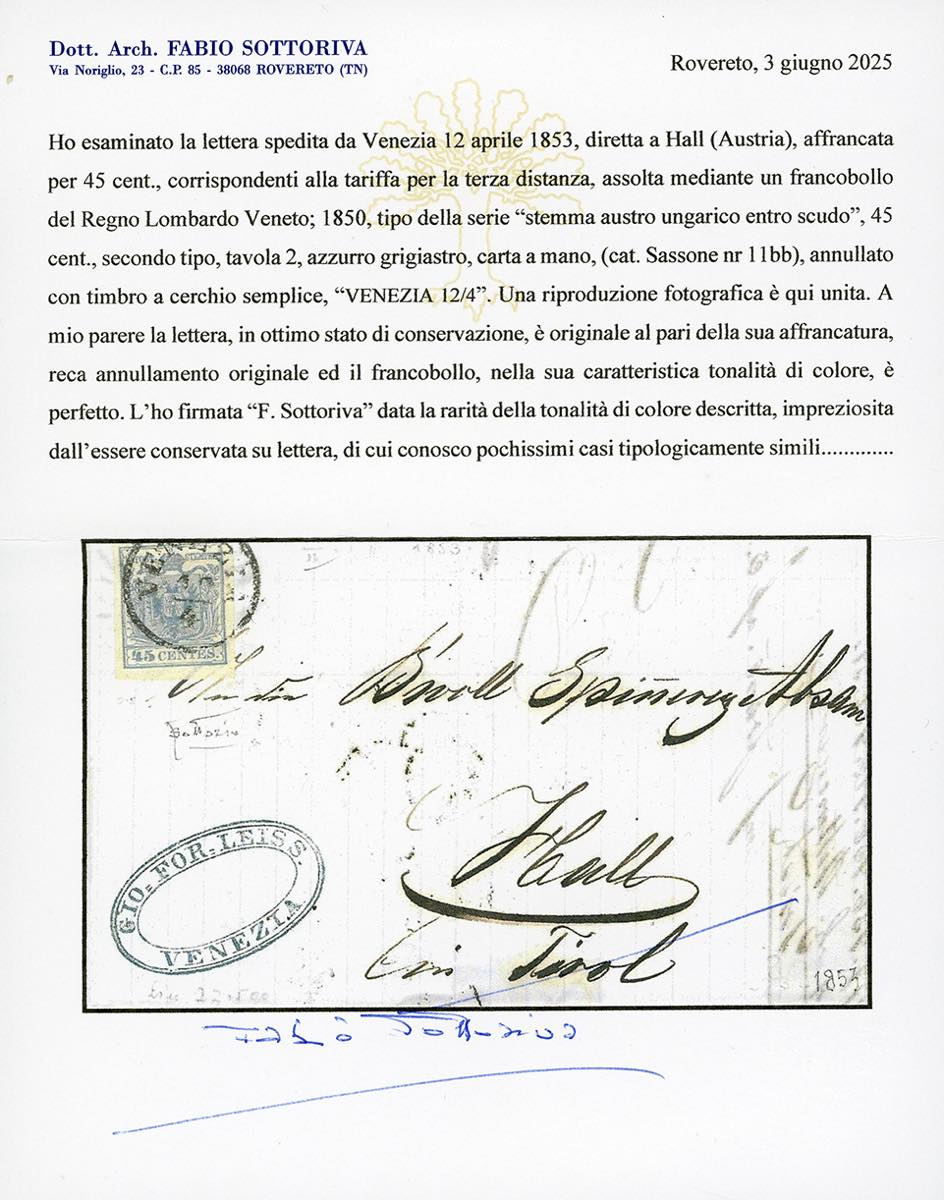 Dott. Arch. FABIO SOTTORIVA
Via Noriglio, 23 - C.P. 85 - 38068 ROVERETO (TN)
Rovereto, 3 giugno 2025
Ho esaminato la lettera spedita da Venezia 12 aprile 1853, diretta a Hall (Austria), affrancata
per 45 cent., corrispondenti alla tariffa per la terza distanza, assolta mediante un francobollo
del Regno Lombardo Veneto; 1850, tipo della serie “stemma austro ungarico entro scudo”, 45
cent., secondo tipo, tavola 2, azzurro grigiastro, carta a mano, (cat. Sassone nr 11bb), annullato
con timbro a cerchio semplice, “VENEZIA 12/4”. Una riproduzione fotografica è qui unita. A
mio parere la lettera, in ottimo stato di conservazione, è originale al pari della sua affrancatura,
reca annullamento originale ed il francobollo, nella sua caratteristica tonalità di colore, è
perfetto. L’ho firmata “F. Sottoriva” data la rarità della tonalità di colore descritta, impreziosita
dall’essere conservata su lettera, di cui conosco pochissimi casi tipologicamente simili.............
1853
45 CENTES.
Spinnerey Absam
Hall
in Tirol
GIO= FOR= LEISS.
VENEZIA
1853
Fabio Sottoriva